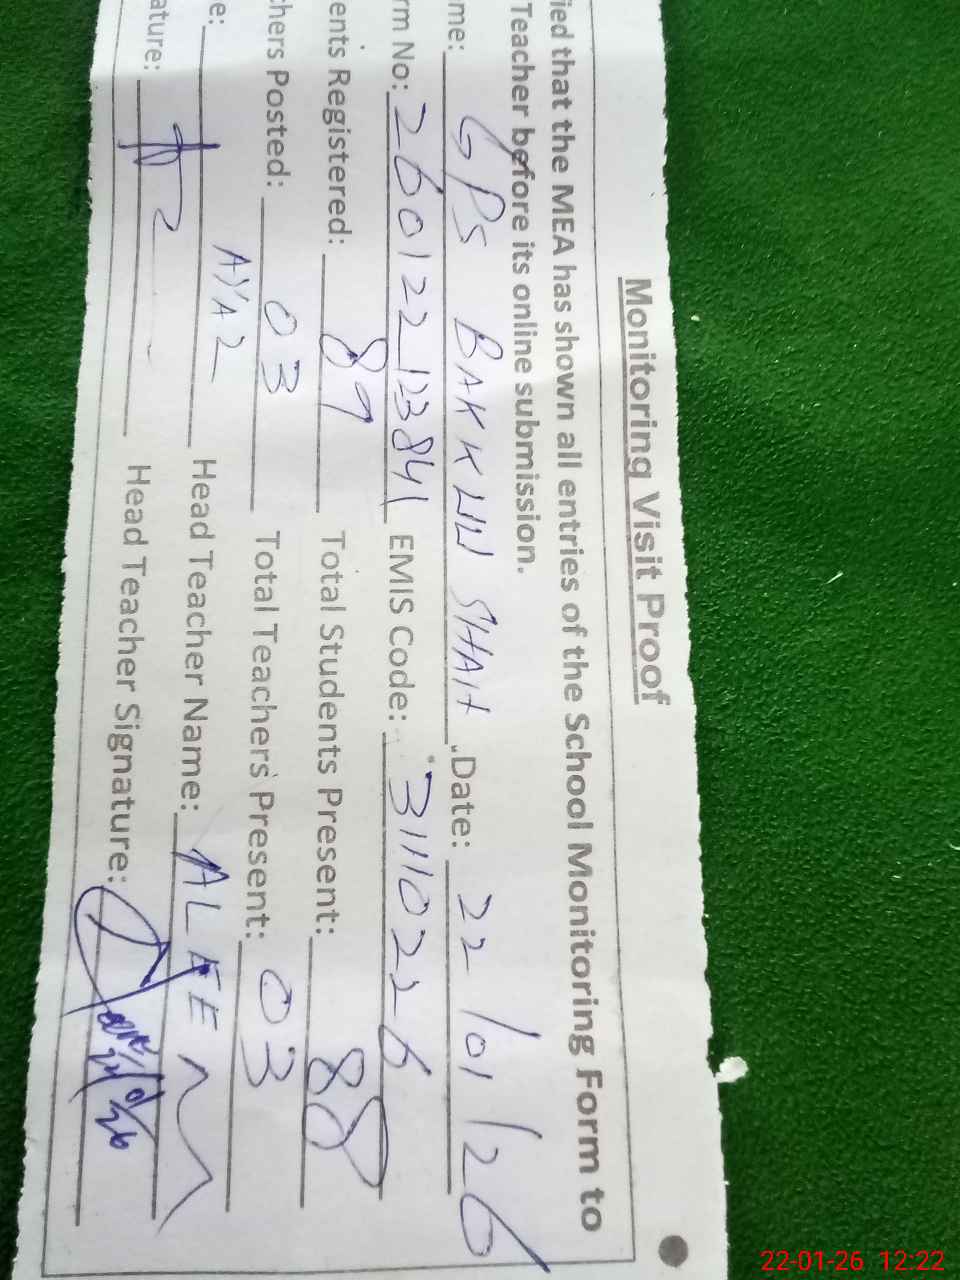 Monitoring Visit Proof
ied that the MEA has shown all entries of the School Monitoring Form to
Teacher before its online submission.
me: GPS BAKKHU SHAH Date: 22/01/26
rm No: 260122 123841 EMIS Code: 31110226
ents Registered: 89 Total Students Present: 88
chers Posted: 03 Total Teachers Present: 03
e: Head Teacher Name: ALEEM
ature: Head Teacher Signature:
22-01-26 12:22